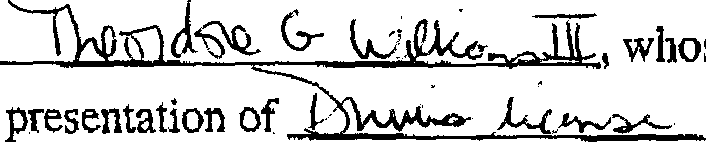 Theodore G Wilkons III, whos
presentation of Drivers license